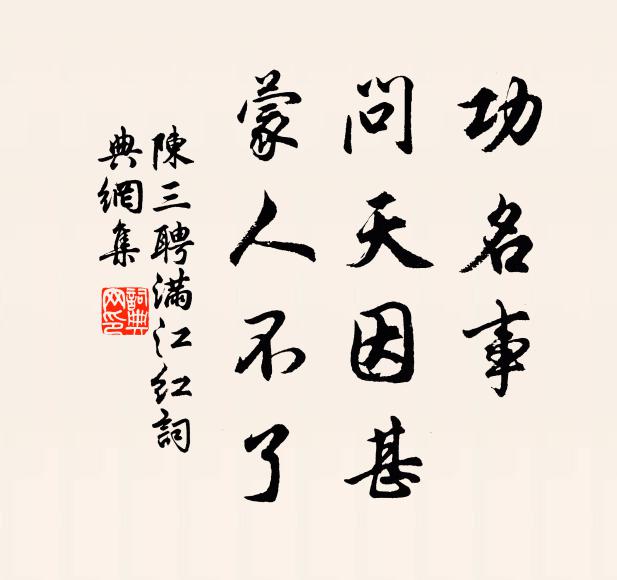 功名事
問天因甚
蒙人不了
陳三聘滿江紅詞
典網集
詞典
网印